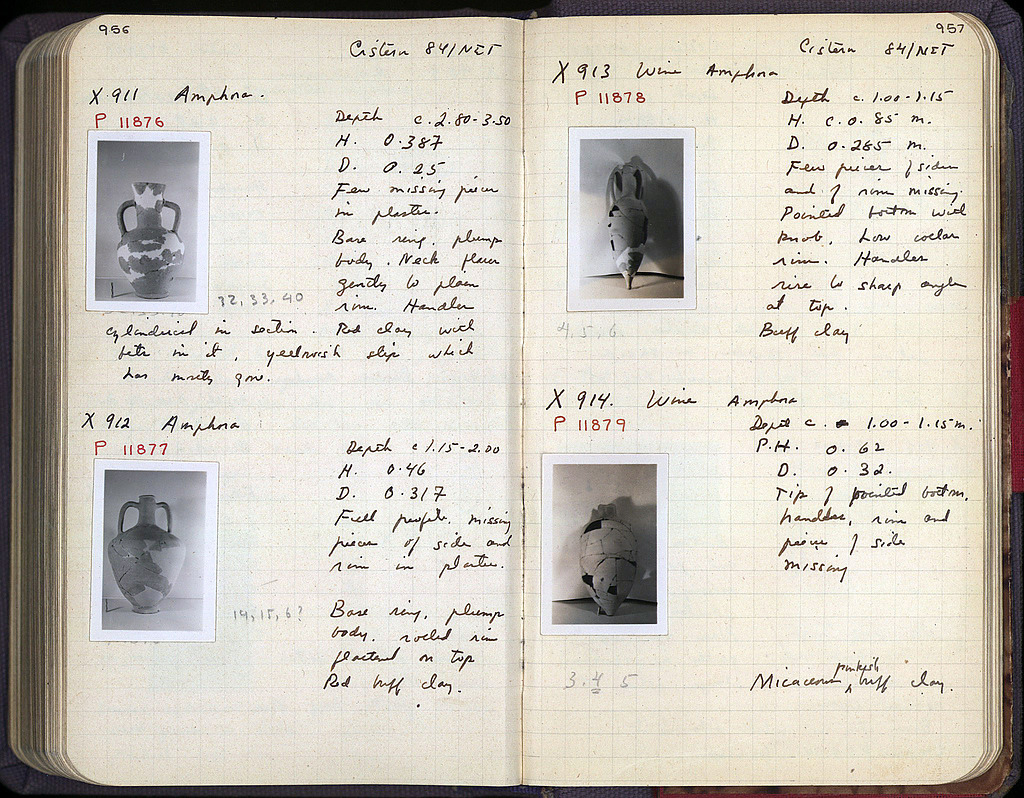 956
Cistern 84/NET
X 911 Amphora.
P 11876
Depth c. 2.80-3.50
H. 0.387
D. 0.25
Few missing pieces
in plaster.
Base ring, plump
body. Neck flares
gently to plain
rim. Handles
32, 33, 40
cylindrical in section. Red clay with
bits in it, yellowish slip which
has mostly gone.
X 912 Amphora
P 11877
Depth c 1.15-2.00
H. 0.46
D. 0.317
Full profile, missing
pieces of side and
rim in plaster.
14, 15, 6?
Base ring, plump
body, rolled rim
flattened on top
Red buff clay.
957
Cistern 84/NET
X 913 Wine Amphora
P 11878
Depth c. 1.00-1.15
H. c.0.85 m.
D. 0.285 m.
Few pieces of side
and of rim missing.
Pointed bottom with
knob. Low collar
rim. Handles
rise to sharp angle
at top.
Buff clay
4, 5, 6
X 914. Wine Amphora
P 11879
Depth c. 1.00-1.15 m.
P.H. 0.62
D. 0.32.
Tip of pointed bottom,
handles, rim and
pieces of side
missing
3. 4 5
pinkish
Micaceous buff clay.